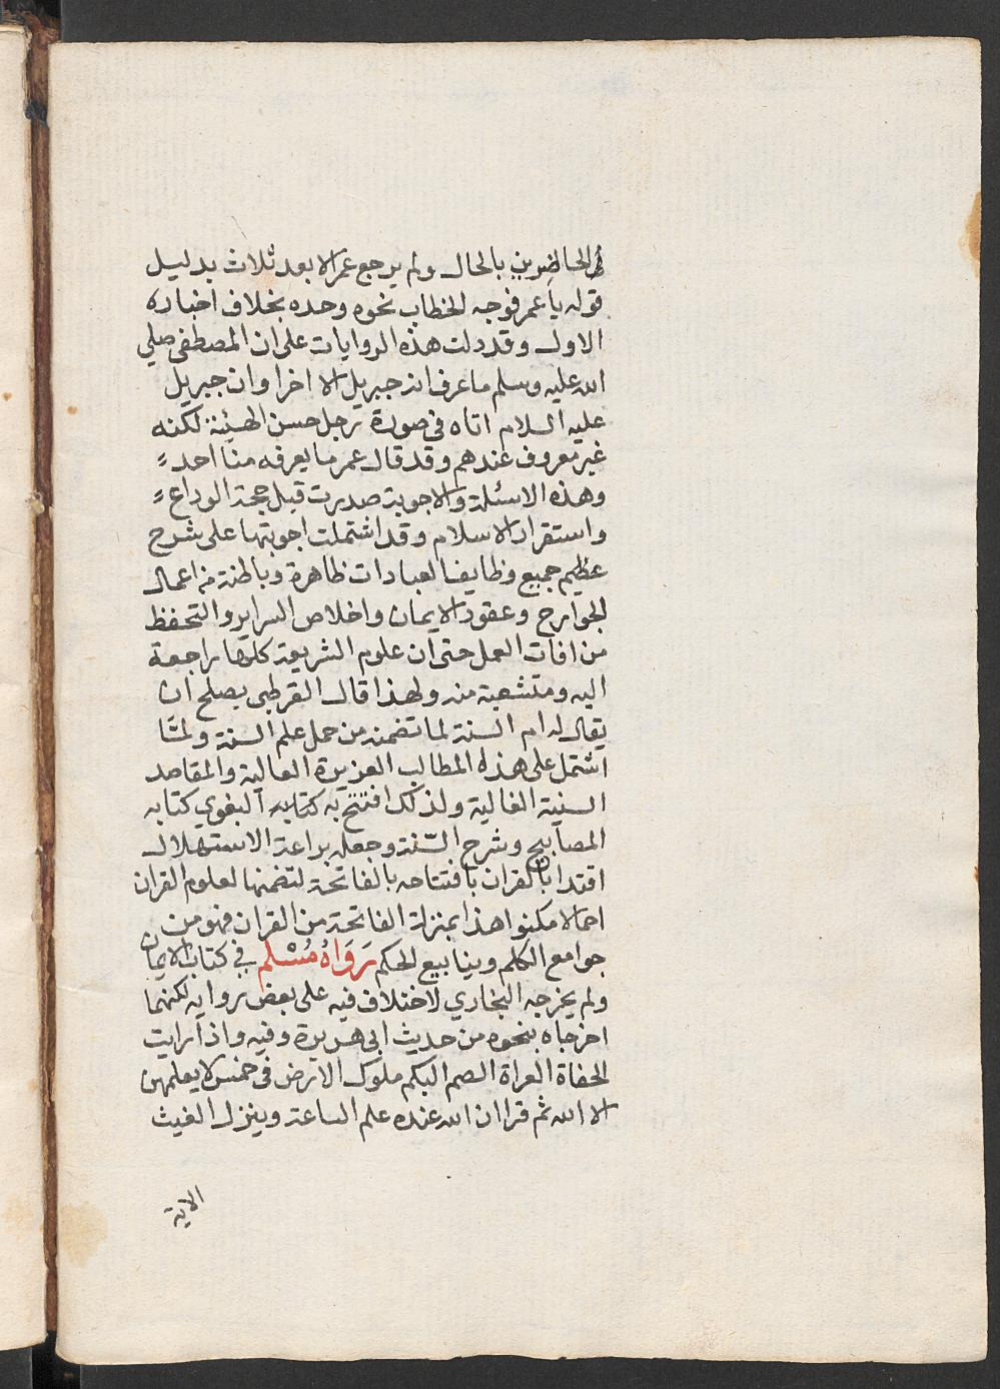 الحاضرين بالحال ولم يرجع عمر الا بعد ثلاث بدليل
قوله يا عمر فوجه الخطاب نحوه وحده بخلاف اخباره
الاول وقد دلت هذه الروايات على ان المصطفى صلي
الله عليه وسلم ما عرف انه جبريل الا اخرا وان جبريل
عليه السلام اتاه في صورة رجل حسن الهيئة لكنه
غير معروف عندهم وقد قال عمر ما يعرفه منا احد
وهذه الاسئلة والاجوبة صدرت قبل حجة الوداع
واستقرار الاسلام وقد اشتملت اجوبتها على شرح
عظيم جميع وظايف العبادات ظاهرة وباطنة من اعمال
الجوارح وعقود الايمان واخلاص السراير والتحفظ
من افات العمل حتى ان علوم الشريعة كلها راجعة
اليه ومتشعبة منه ولهذا قال القرطبي يصلح ان
يقال له ام السنة لما تضمنه من حمل علم السنة ولمَّا
اشتمل على هذه المطالب العزيزة العالية والمقاصد
السنية الغالية ولذلك افتتح به كتابه البغوي كتابه
المصابيح وشرح السّنة وجعله براعة الاستهلال
اقتدا بالقران بافتتاحه بالفاتحة لتضمنها لعلوم القران
احمالا مكنوا هذا بمنزلة الفاتحة من القران فهو من
جوامع الكلم وينابيع الحكم رَوَاهُ مُسْلِم في كتاب الايمان
ولم يخرجه البخاري لاختلاف فيه على بعض روايه لكنهما
اخرجاه بنحوه من حديث ابي هريرة وفيه واذا رايت
الحفاة العراة الصم البكم ملوك الارض في خمس لا يعلمهن
الا الله ثم قرا ان الله عنده علم الساعة وينزل الغيث
الاية